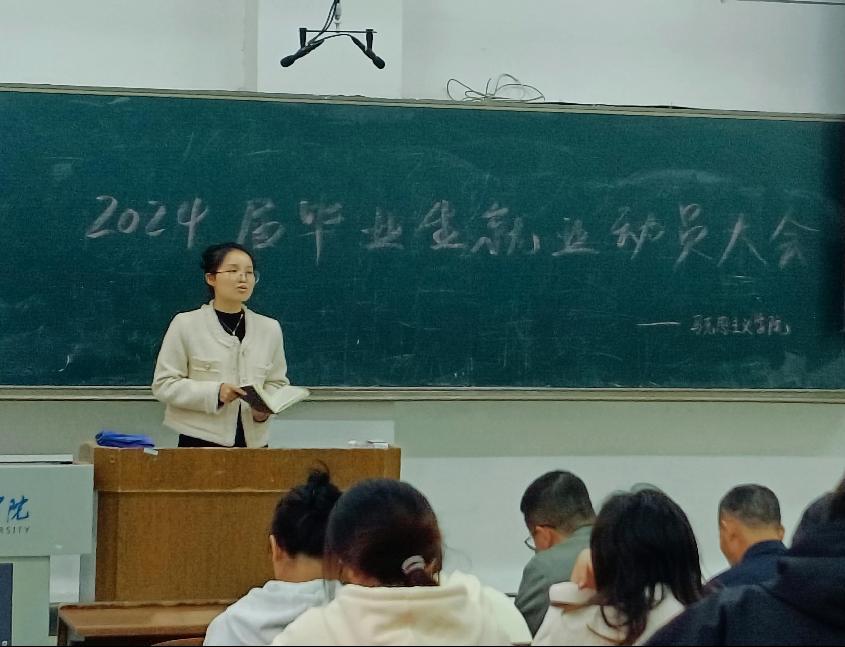 2024届毕业生就业动员大会
——马克思主义学院
学院
RSITY